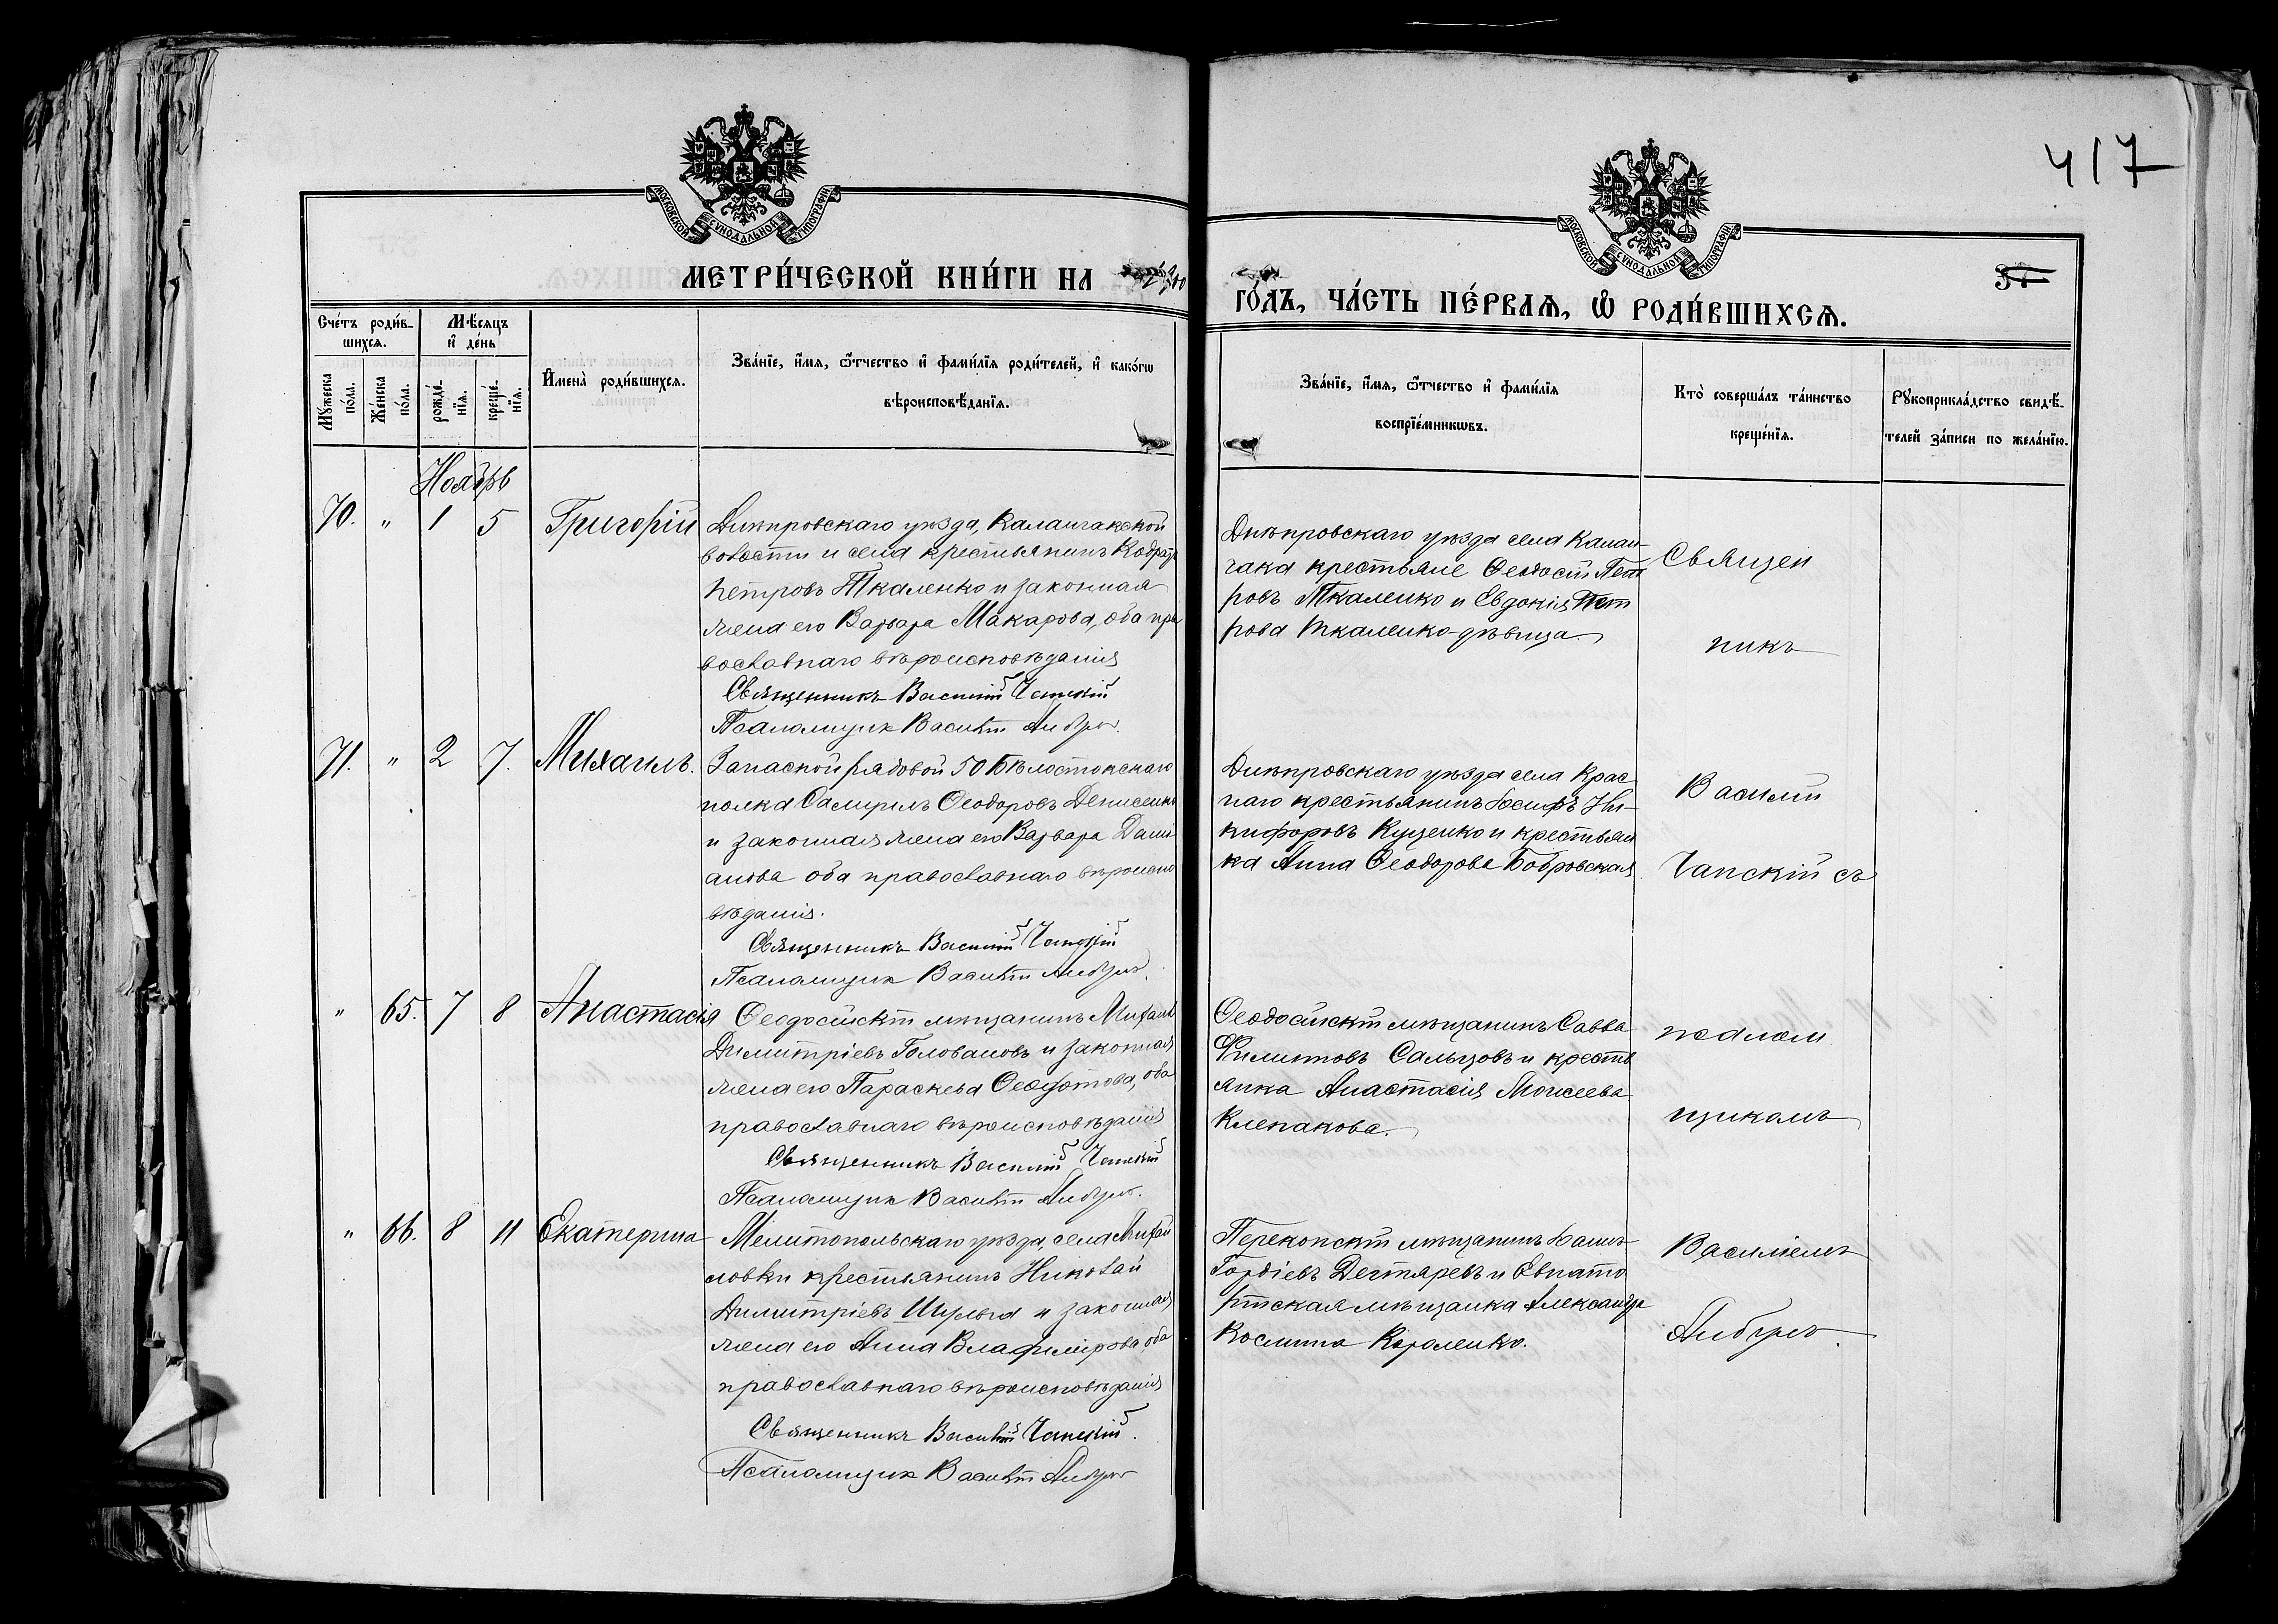 417
МОСКОВСКОЙ СѴНОДАЛЬНОЙ ТИПОГРАФІИ
МОСКОВСКОЙ СѴНОДАЛЬНОЙ ТИПОГРАФІИ
МЕТРИ́ЧЕСКОЙ КНИ́ГИ НА
ГО́ДЪ, ЧА́СТЬ ПЕ́РВАѦ, Ѿ РОДИ́ВШИХСѦ.
Сче́тъ роди́в-
шихсѧ.
Мѣсѧцъ
и҆ де́нь
Мꙋ́жеска
по́ла.
Же́нска
по́ла.
рожде́-
нїѧ.
креще́-
нїѧ.
И҆мена̀ роди́вшихсѧ.
Зва́нїе, и҆́мѧ, ѻ҆́тчество и҆ фами́лїѧ роди́телей, и҆ како́гѡ
вѣроисповѣ́данїѧ.
Зва́нїе, и҆́мѧ, ѻ҆́тчество и҆ фами́лїѧ
воспрїе́мникѡвъ.
Кто̀ соверша́лъ та́инство
креще́нїѧ.
Рꙋкоприкла́дство свидѣ́-
телей за́писи по жела́нїю.
Ноябрь
70. " 1 5 Григорій
Днѣпровскаго уѣзда, Каланчакской
волости и села крестьянинъ Кодратъ
Петровъ Ткаленко и законная
жена его Варвара Макарова, оба пра
вославнаго вѣроисповѣданія
Священникъ Василій Чапскій
Псаломщик Василій
Днѣпровскаго уѣзда села Калан-
чака крестьяне Ѳеодосій Пет
ровъ Ткаленко и Евдокія Пет
рова Ткаленко-дѣвица.
Священ
никъ
71. " 2 7. Михаилъ.
Запасной рядовой 50 Бѣлостокскаго
полка Самуилъ Ѳеодоровъ Денисенко
и законная жена его Варвара Дамі
анова оба православнаго вѣроиспо
вѣданія.
Священникъ Василій Чапскій
Псаломщик Василій
Днѣпровскаго уѣзда села Крас
наго крестьянинъ Іосифъ Ни-
кифоровъ Куценко и крестьян
ка Анна Ѳеодорова Бобровская
Василій
Чапскій съ
" 65. 7 8 Анастасія
Ѳеодосійскій мѣщанинъ Михаилъ
Димитріевъ Головановъ и законная
жена его Параскева Ѳеодотова, оба
православнаго вѣроисповѣданія
Священникъ Василій Чапскій
Псаломщик Василій
Ѳеодосійскій мѣщанинъ Савва
Филиповъ Сальцовъ и кресть
янка Анастасія Моисеева
Клепакова.
псалом
щикомъ
" 66. 8 11 Екатерина
Мелитопольскаго уѣзда, села Михай
ловки крестьянинъ Николай
Димитріевъ Шульга и законная
жена его Анна Владимірова, оба
православнаго вѣроисповѣданія
Священникъ Василій Чапскій.
Псаломщик Василій
Перекопскій мѣщанинъ Іоаннъ
Гордіевъ Дегтяревъ и Евпато
рійская мѣщанка Александра
Космина Короленко.
Василіемъ